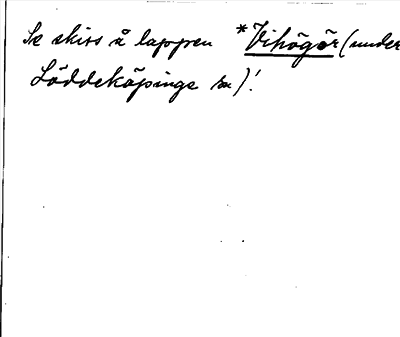 Se skiss å lappen *Vihögör (under
Löddeköpinge sn)!